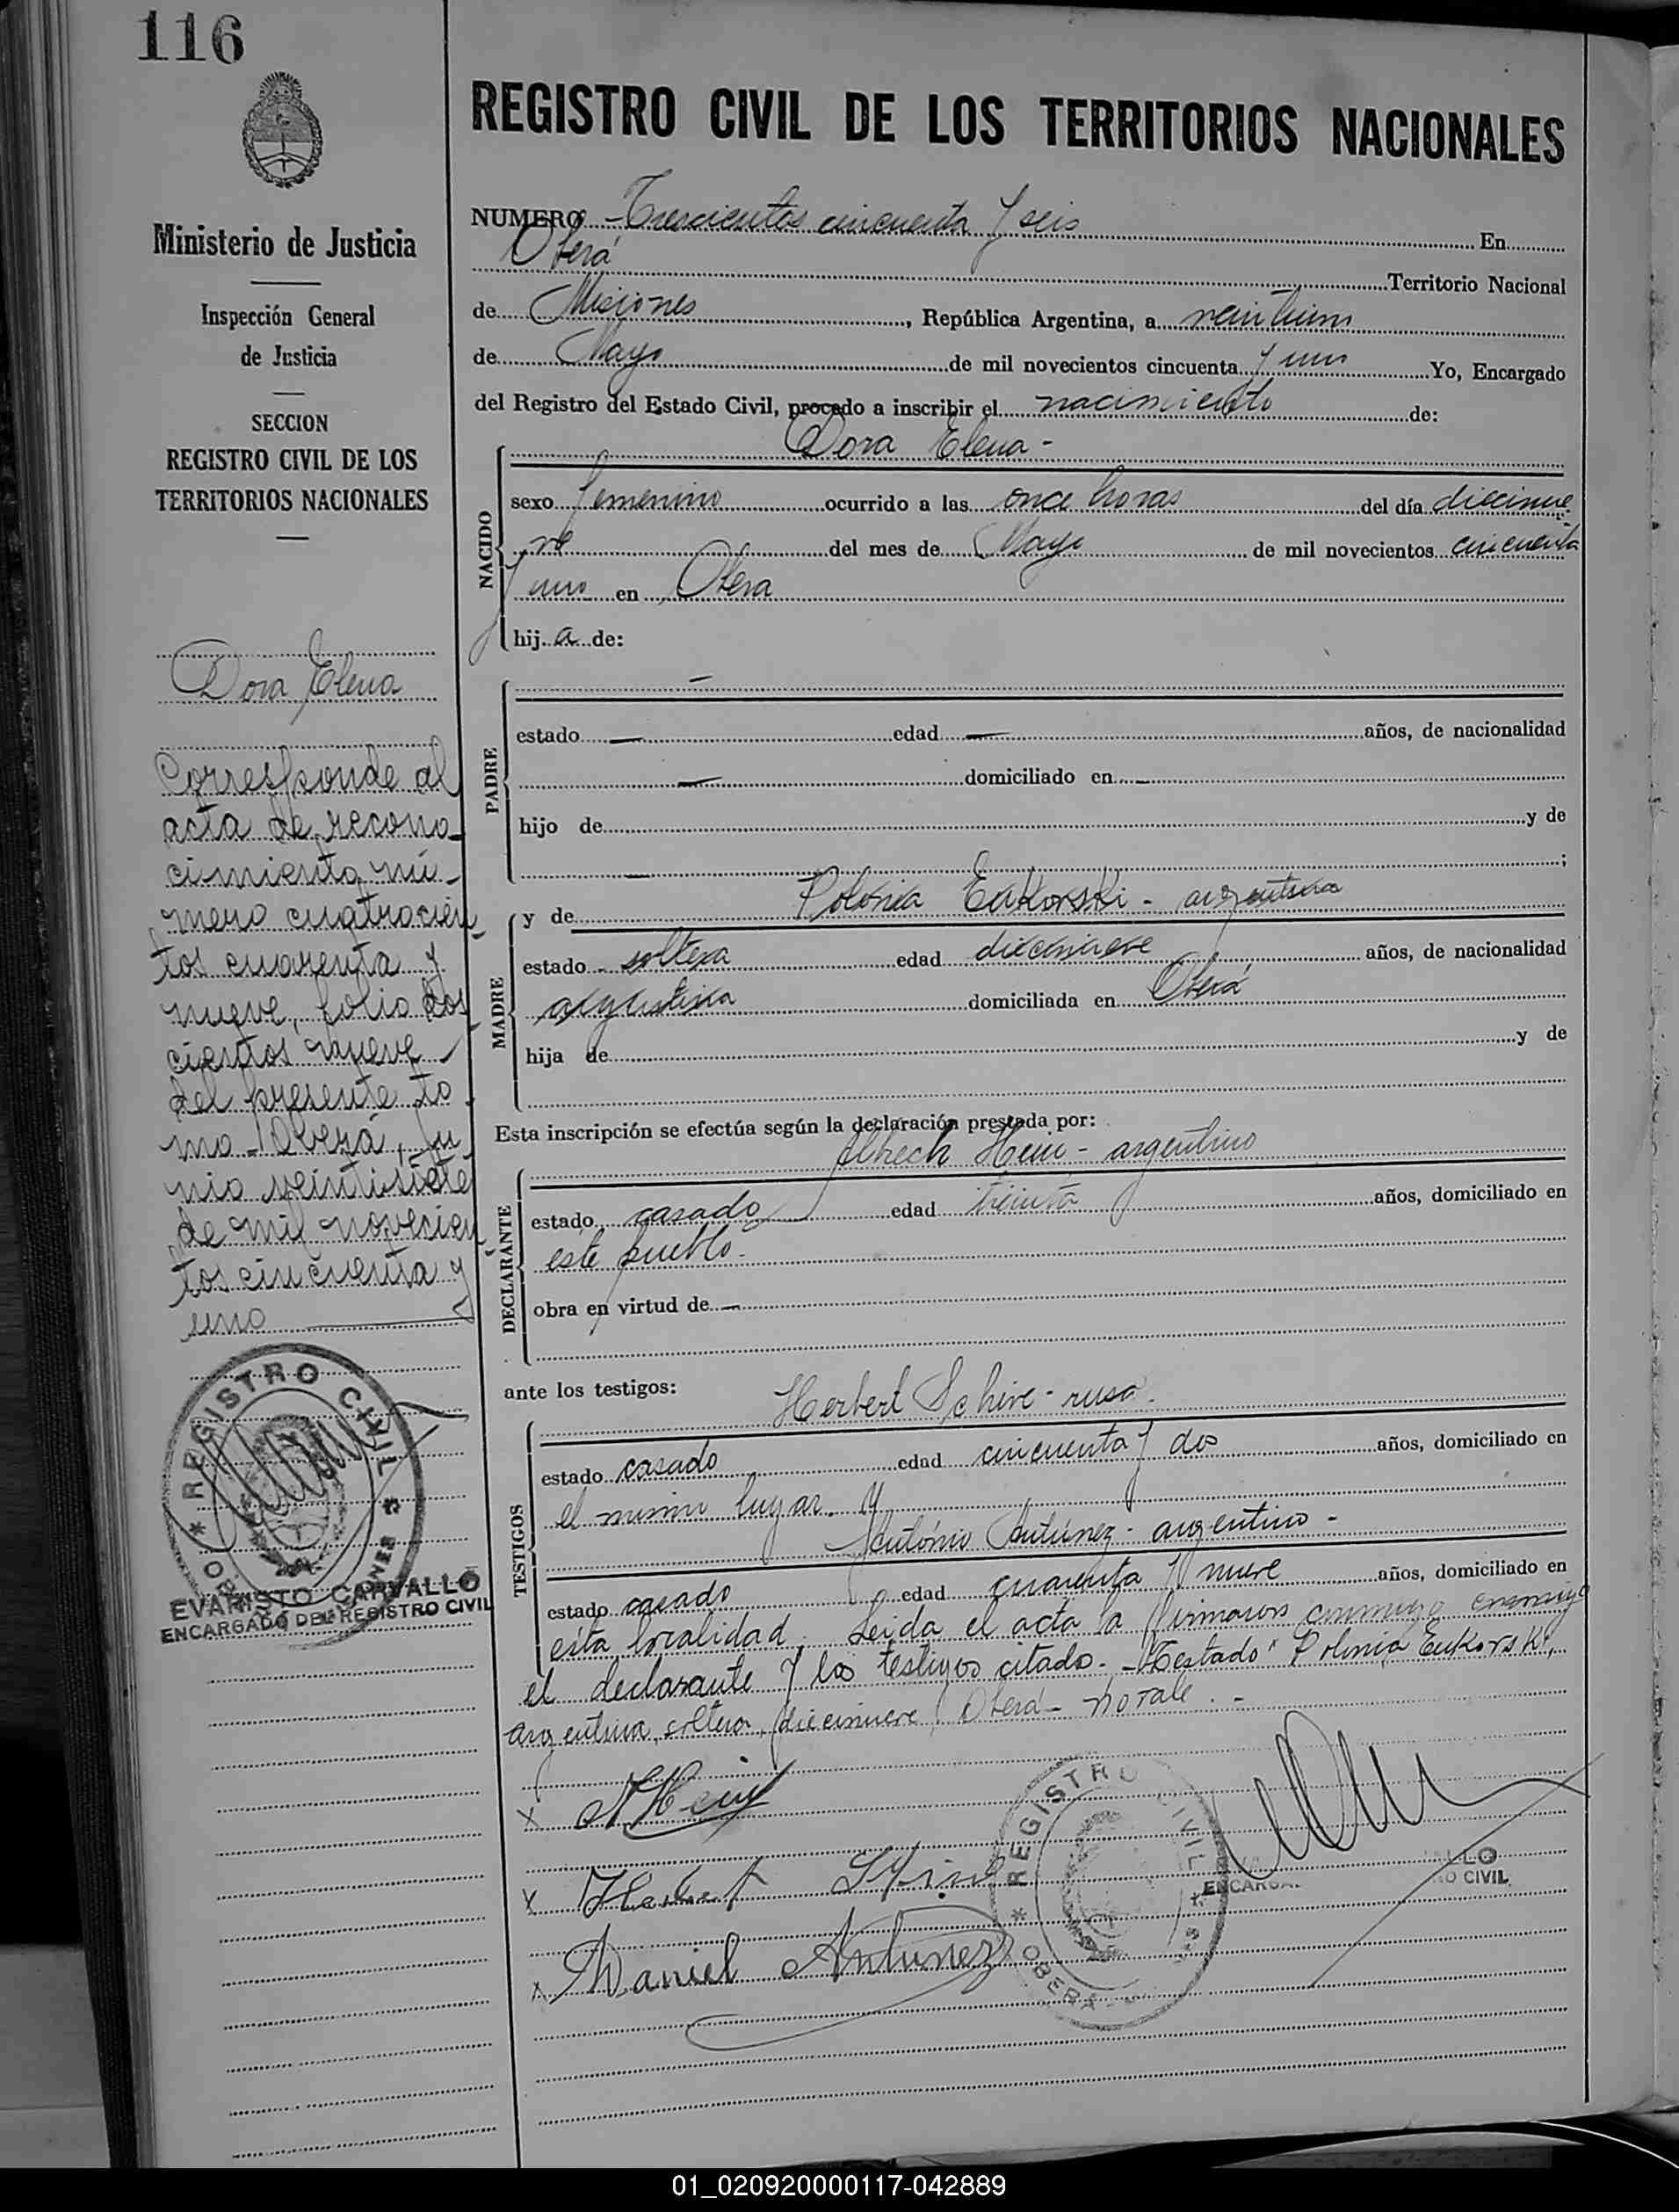 116
Ministerio de Justicia
Inspección General
de Justicia
SECCION
REGISTRO CIVIL DE LOS
TERRITORIOS NACIONALES
Dora Elena
Corresponde al
acta de recono-
cimiento nú-
mero cuatrocien-
tos cuarenta y
nueve, folio dos-
cientos nueve
del presente to-
mo - Oberá, Ju-
nio veintisiete
de mil novecien-
tos cincuenta y
uno
REGISTRO CIVIL
EVARISTO CARVALLO
ENCARGADO DEL REGISTRO CIVIL
REGISTRO CIVIL DE LOS TERRITORIOS NACIONALES
NUMERO - Trescientos cincuenta y seis En
Oberá Territorio Nacional
de Misiones, República Argentina, a veintiuno
de Mayo de mil novecientos cincuenta y uno Yo, Encargado
del Registro del Estado Civil, procedo a inscribir el nacimiento de:
Dora Elena -
NACIDO
sexo femenino ocurrido a las once horas del día diecinue-
ve del mes de Mayo de mil novecientos cincuenta
y uno en Oberá
hij a de:
PADRE
—
estado — edad — años, de nacionalidad
— domiciliado en —
hijo de y de
— ;
MADRE
y de Polonia Eukorski - argentina
estado - soltera edad diecinueve años, de nacionalidad
argentina domiciliada en Oberá
hija de y de
Esta inscripción se efectúa según la declaración prestada por:
DECLARANTE
Hein - argentino
estado casado edad treinta años, domiciliado en
este pueblo.
obra en virtud de —
ante los testigos:
TESTIGOS
Herbert - ruso.
estado casado edad cincuenta y dos años, domiciliado en
el mismo lugar. y
Antonio Antúnez - argentino -
estado casado edad cuarenta y nueve años, domiciliado en
esta localidad. Leida el acta la firmaron conmigo
el declarante y los testigos citado. - Testado "Polonia Eukorski,
argentina, soltera, diecinueve, Oberá - no vale. -
x Hein
x
x Daniel Antunez
REGISTRO CIVIL
OBERÁ
01_020920000117-042889